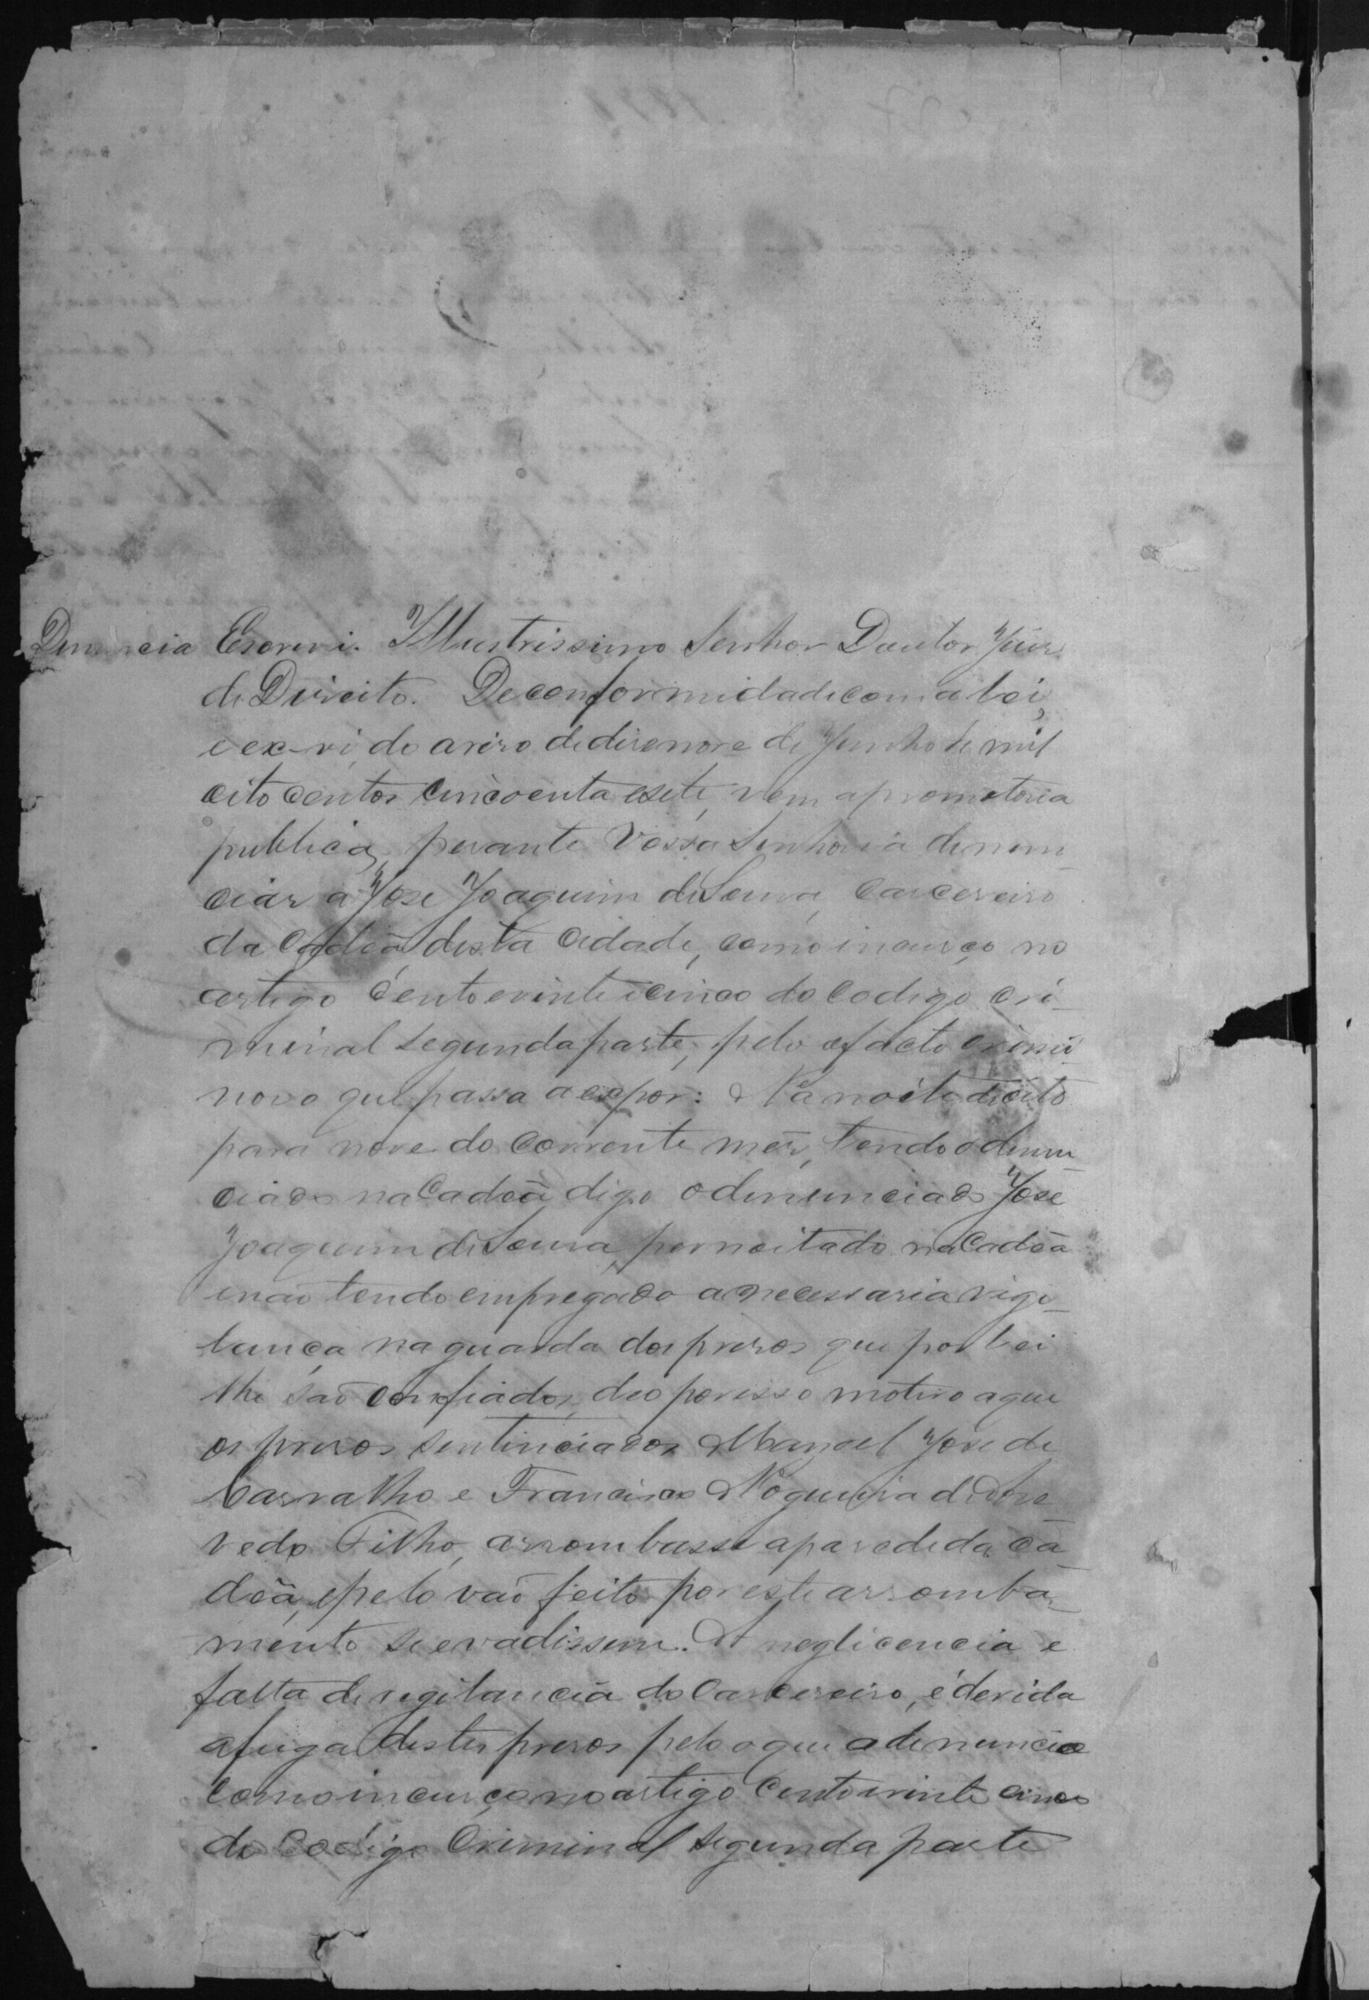 Denuncia Escrevi. Illustrissimo Senhor Doutor Juiz
de Direito. De conformidade com a Lei,
e ex-vi, do aviso de disenove de Junho de mil
oito centos cincoenta esete, vem a promotoria
publica, perante Vossa Senhoria denun-
ciar a José Joaquim de Sousa, Carcereiro
da Cadêa desta Cidade, como incurço no
artigo Cento evinte ecinco do Codigo cri-
minal segunda parte, pelo facto crimi
noso que passa a expor: Na noite de oito
para nove do corrente mês, tendo o denun
ciado na Cadêa digo o denunciado José
Joaquim de Sousa, pernoitado na Cadêa
enão tendo empregado a necessaria vigi-
lança na guarda dos presos que por Lei
lhe são confiados, deo porisso motivo aque
os presos sentenciados Manoel José de
Carvalho e Francisco Nogueira de Aze
vedo Filho, arrombasse a parede da ca-
dêa, epelo vão feito por este arromba-
mento se evadissem. A neglicencia e
falta de vigilancia do Carcereiro, é devida
afuga destes presos pelo que a denuncia
como incurço no artigo Cento evinte cinco
do Codigo Criminal segunda parte